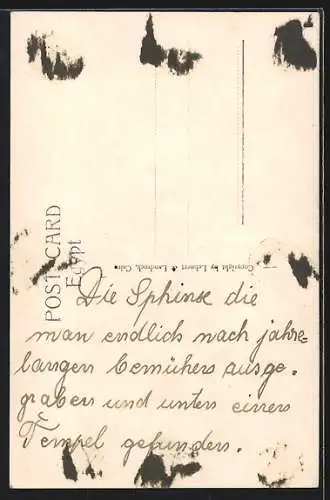 POST CARD
Egypt
Copyright by Lehnert & Landrock, Cairo
Die Sphinse die
man endlich nach jahre-
langen bemühens ausge-
graben und unter einers
Tempel gefunden.